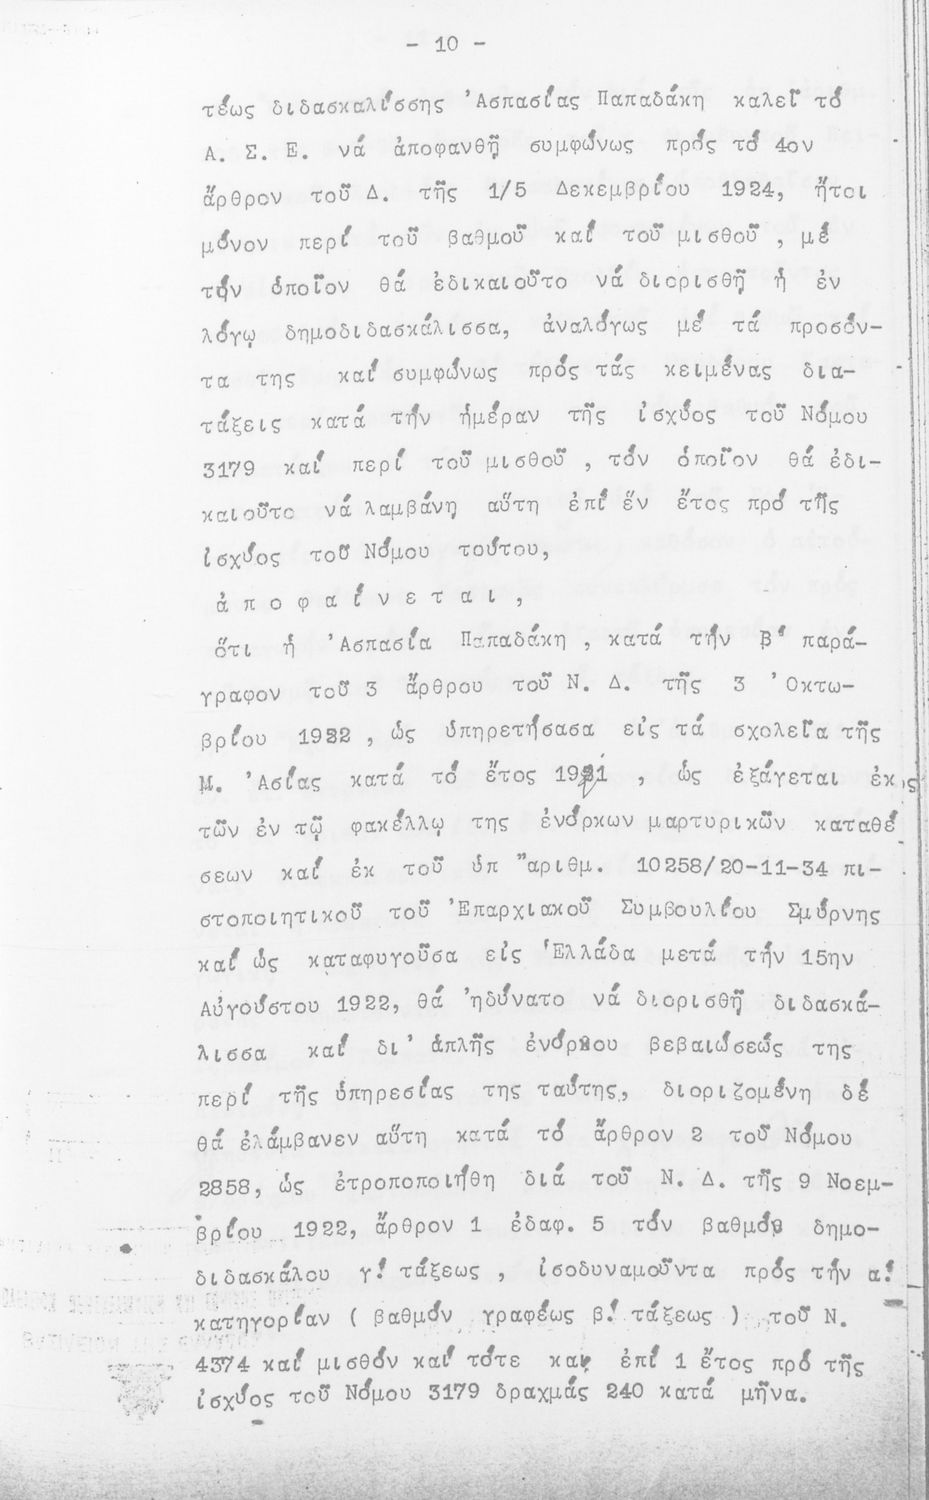 - 10 -
τέως διδασκαλίσσης Ἀσπασίας Παπαδάκη καλεῖ τό
Α. Σ. Ε. νά ἀποφανθῇ συμφώνως πρός τό 4ον
ἄρθρον τοῦ Δ. τῆς 1/5 Δεκεμβρίου 1924, ἤτοι
μόνον περί τοῦ βαθμοῦ καί τοῦ μισθοῦ , μέ
τόν ὁποῖον θά ἐδικαιοῦτο νά διορισθῇ ἡ ἐν
λόγῳ δημοδιδασκάλισσα, ἀναλόγως μέ τά προσόν-
τα της καί συμφώνως πρός τάς κειμένας δια-
τάξεις κατά τήν ἡμέραν τῆς ἰσχύος τοῦ Νόμου
3179 καί περί τοῦ μισθοῦ , τόν ὁποῖον θά ἐδι-
καιοῦτο νά λαμβάνῃ αὕτη ἐπί ἕν ἔτος πρό τῆς
ἰσχύος τοῦ Νόμου τούτου,
ἀ π ο φ α ί ν ε τ α ι ,
ὅτι ἡ Ἀσπασία Παπαδάκη , κατά τήν Β' παρά-
γραφον τοῦ 3 ἄρθρου τοῦ Ν. Δ. τῆς 3 Ὀκτω-
βρίου 1922 , ὡς ὑπηρετήσασα εἰς τά σχολεῖα τῆς
Μ. Ἀσίας κατά τό ἔτος 1921 , ὡς ἐξάγεται ἐκ
τῶν ἐν τῷ φακέλλῳ της ἐνόρκων μαρτυρικῶν καταθέ
σεων καί ἐκ τοῦ ὑπ "αριθμ. 10258/20-11-34 πι-
στοποιητικοῦ τοῦ Ἐπαρχιακοῦ Συμβουλίου Σμύρνης
καί ὡς καταφυγοῦσα εἰς Ἑλλάδα μετά τήν 15ην
Αὐγούστου 1922, θά 'ηδύνατο νά διορισθῇ διδασκά-
λισσα καί δι' ἁπλῆς ἐνόρκου βεβαιώσεώς της
περί τῆς ὑπηρεσίας της ταύτης, διοριζομένη δέ
θά ἐλάμβανεν αὕτη κατά τό ἄρθρον 2 τοῦ Νόμου
2858, ὡς ἐτροποποιήθη διά τοῦ Ν. Δ. τῆς 9 Νοεμ-
βρίου 1922, ἄρθρον 1 ἐδαφ. 5 τόν βαθμόν δημο-
διδασκάλου γ! τάξεως , ἰσοδυναμοῦντα πρός τήν α!
κατηγορίαν ( βαθμόν γραφέως β! τάξεως ) τοῦ Ν.
4374 καί μισθόν καί τότε και ἐπί 1 ἔτος πρό τῆς
ἰσχύος τοῦ Νόμου 3179 δραχμάς 240 κατά μῆνα.